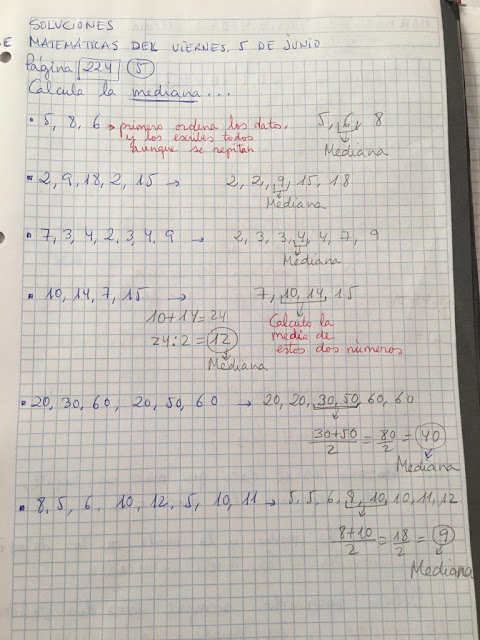 SOLUCIONES
E MATEMÁTICAS DEL VIERNES, 5 DE JUNIO
Página 224 5
Calcula la mediana...
• 5, 8, 6 → primero ordena los datos, 5, 6, 8
y los escribes todos Mediana
aunque se repitan
• 2, 9, 18, 2, 15 → 2, 2, 9, 15, 18
Mediana
• 7, 3, 4, 2, 3, 4, 9 → 2, 3, 3, 4, 4, 7, 9
Mediana
• 10, 14, 7, 15 → 7, 10, 14, 15
10+14=24 Calculo la
24:2 = 12 media de
Mediana estos dos números
• 20, 30, 60, 20, 50, 60 → 20, 20, 30, 50, 60, 60
30+50/2 = 80/2 = 40
Mediana
• 8, 5, 6, 10, 12, 5, 10, 11 → 5, 5, 6, 8, 10, 10, 11, 12
8+10/2 = 18/2 = 9
Mediana